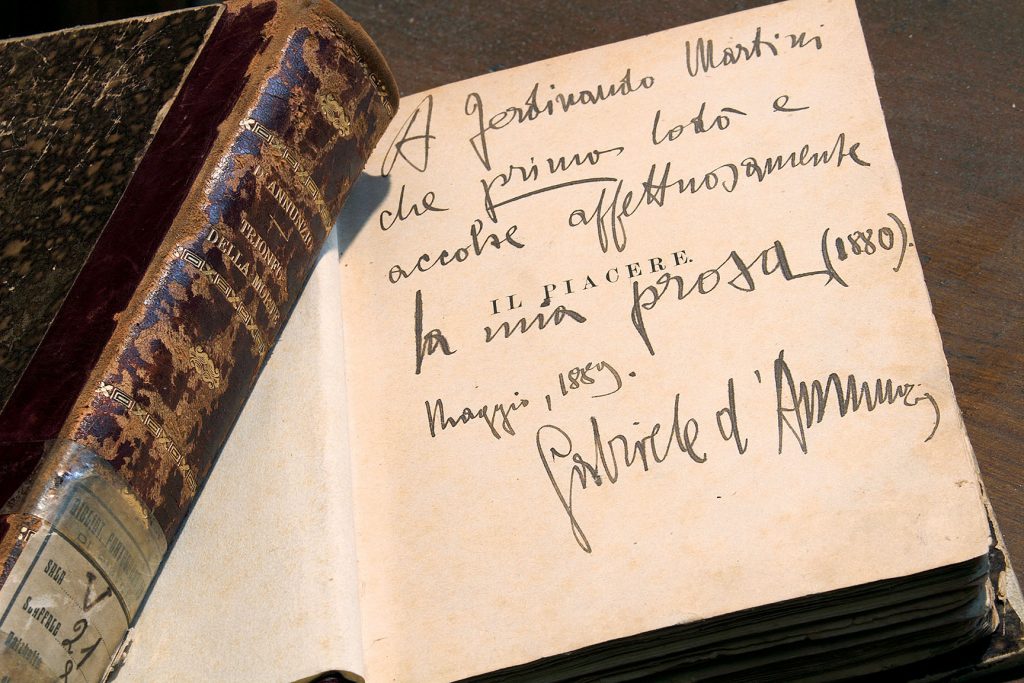 D'ANNUNZIO
TRIONFO
DELLA MORTE
SALA V
SCAFFALE 21
A Ferdinando Martini
che primo lodò e
accolse affettuosamente
IL PIACERE.
la mia prosa (1880).
Maggio, 1889.
Gabriele d'Annunzio